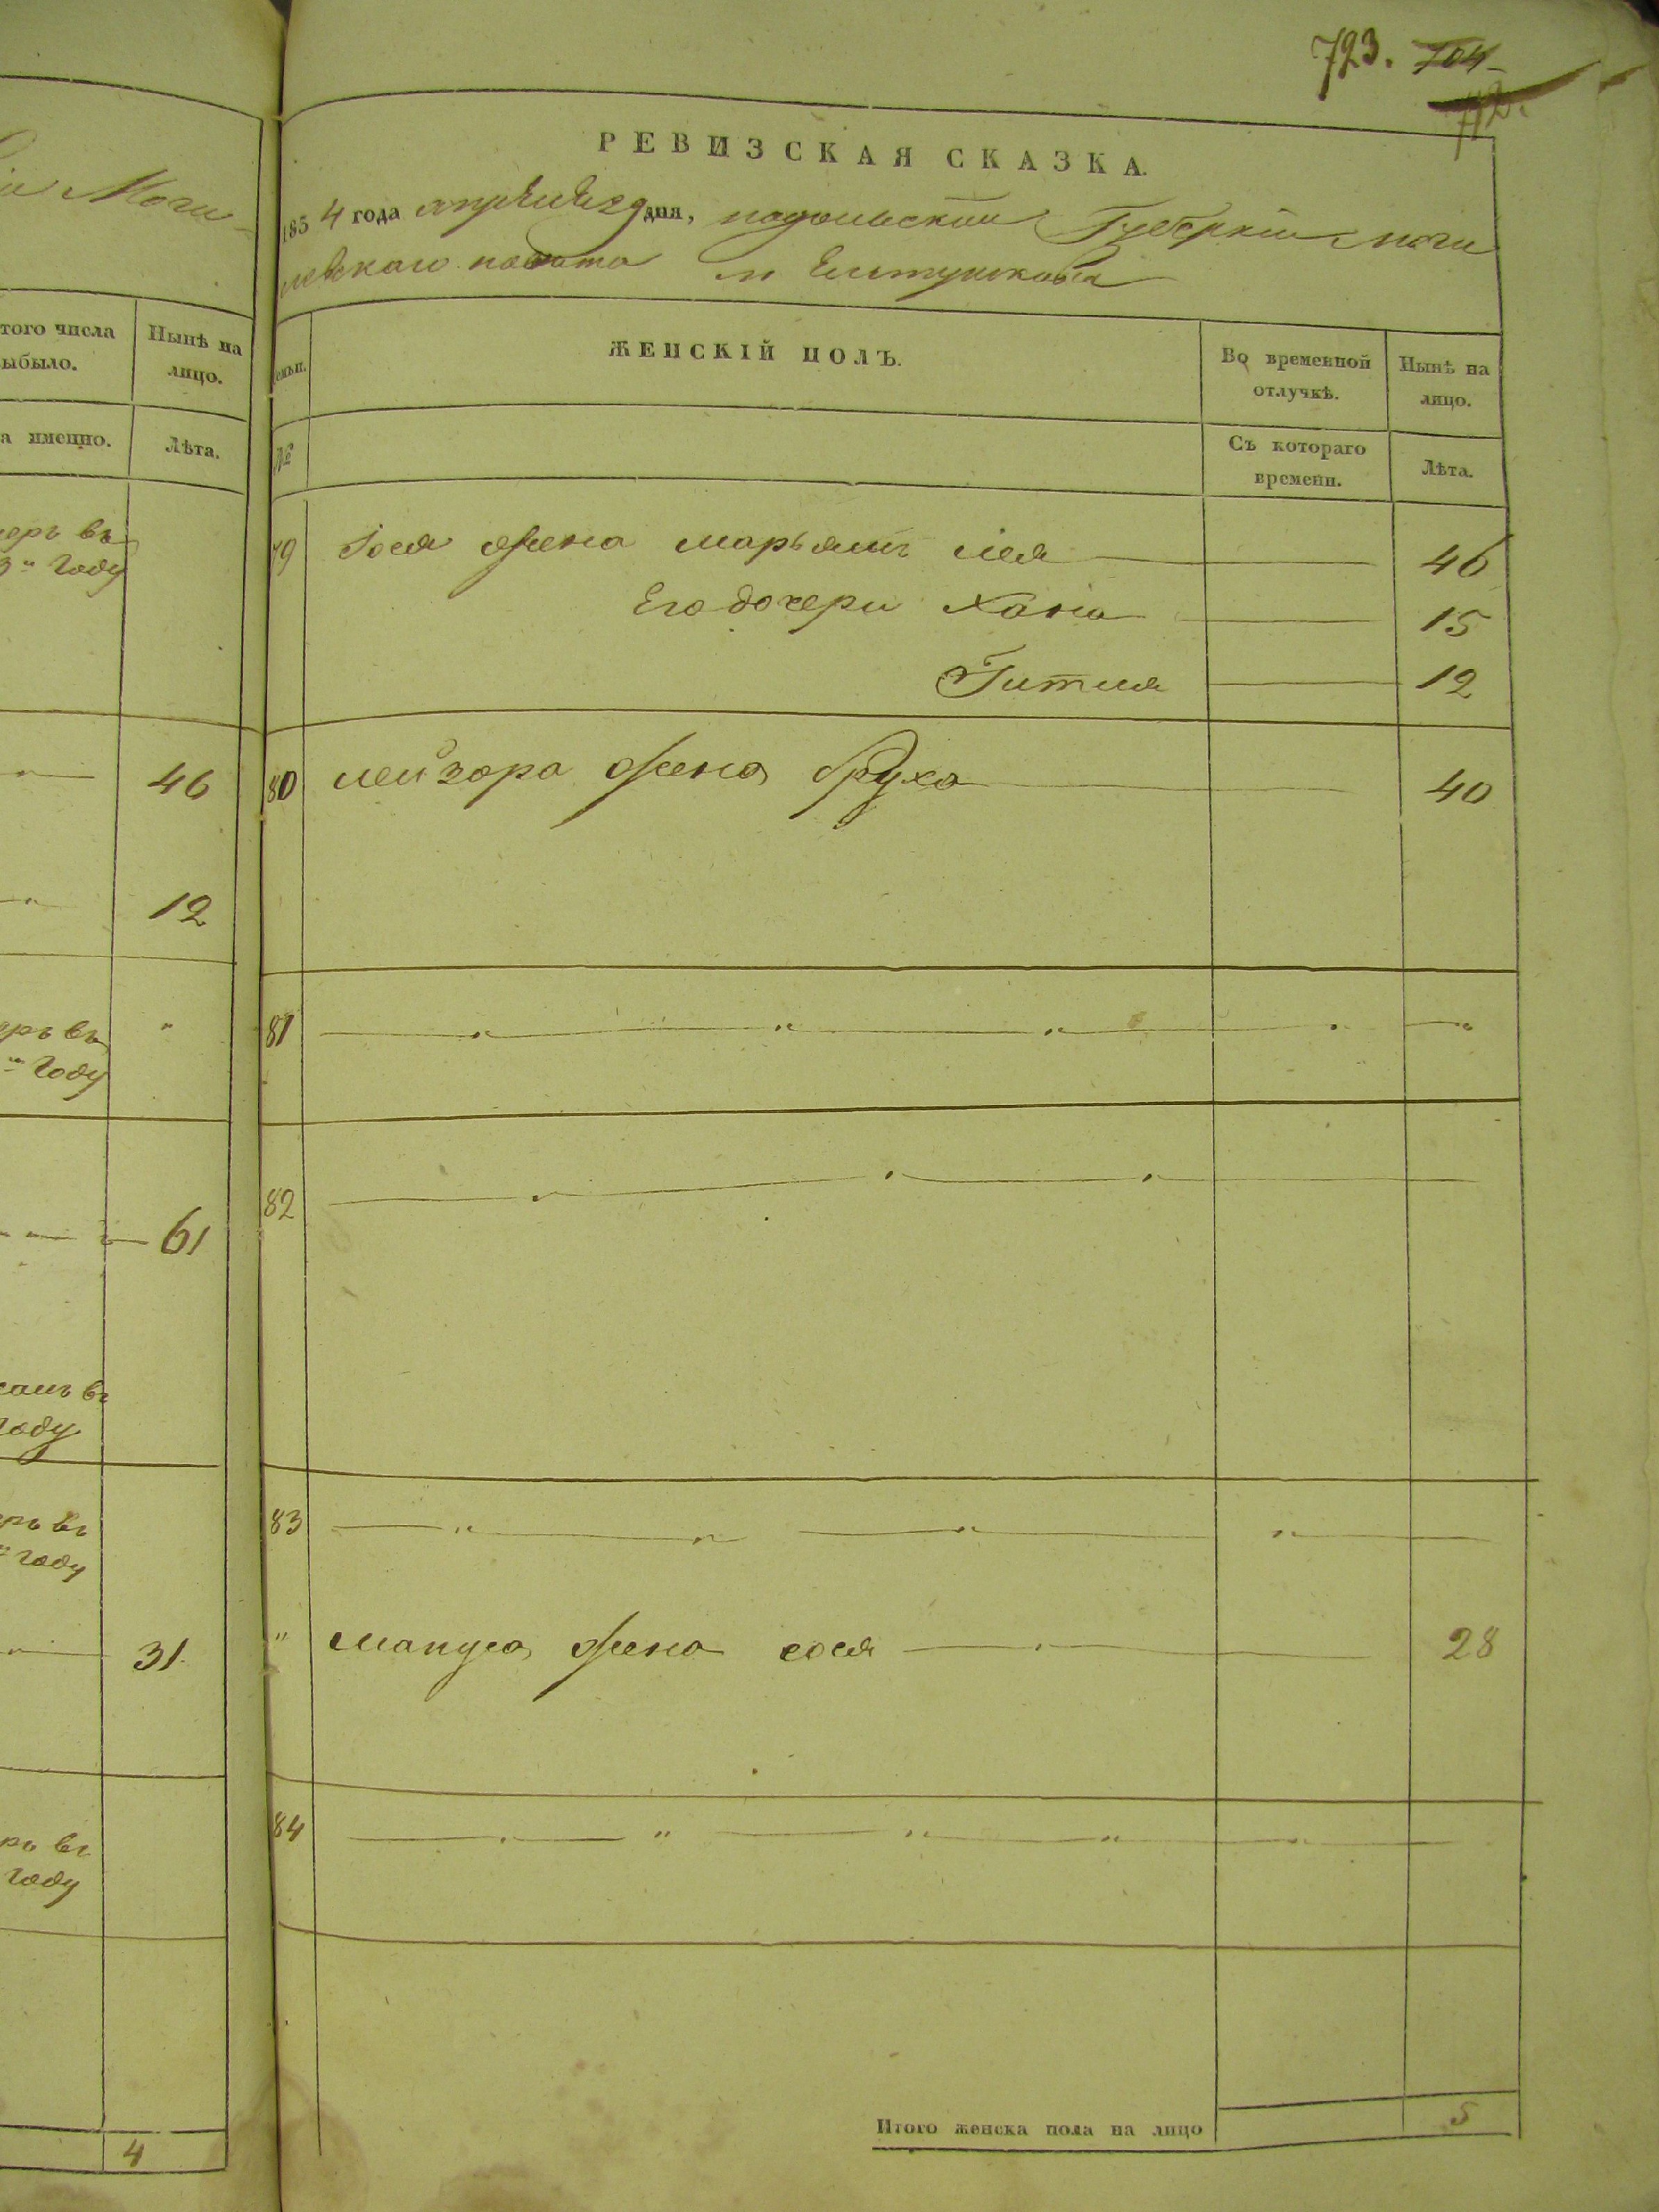 723. 704
712.
Моги
того числа
ыбыло.
Нынѣ на
лицо.
а именно.
Лѣта.
еръ въ
3го Году
46
12
еръ въ
го Году
61
въ
Году
ръ въ
году
31
ръ въ
году
4
РЕВИЗСКАЯ СКАЗКА.
1854 года апреля 29 дня, подольскии Губернии моги
левскаго повѣта м Елтушкова
семьи.
ЖЕНСКІЙ ПОЛЪ.
Во временной
отлучкѣ.
Нынѣ на
лицо.
№
Съ котораго
времени.
Лѣта.
79 Іося жена марьямъ лея 46
Его дочери Хана 15
Гитля 12
80 лейзора жена Бруха 40
81
82
83
" мануса жена сося 28
84
Итого женска пола на лицо 5